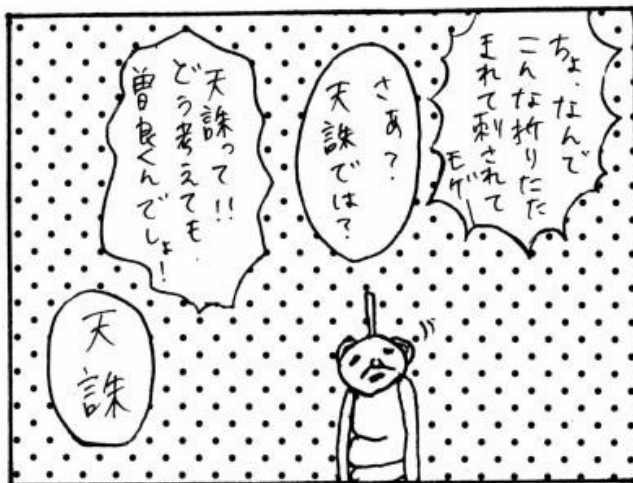 ちょ、なんで
こんな折りたた
まれて刺されて
モゲー
さあ?
天誅では?
天誅って!!
どう考えても、
曽良くんでしょ!
天誅